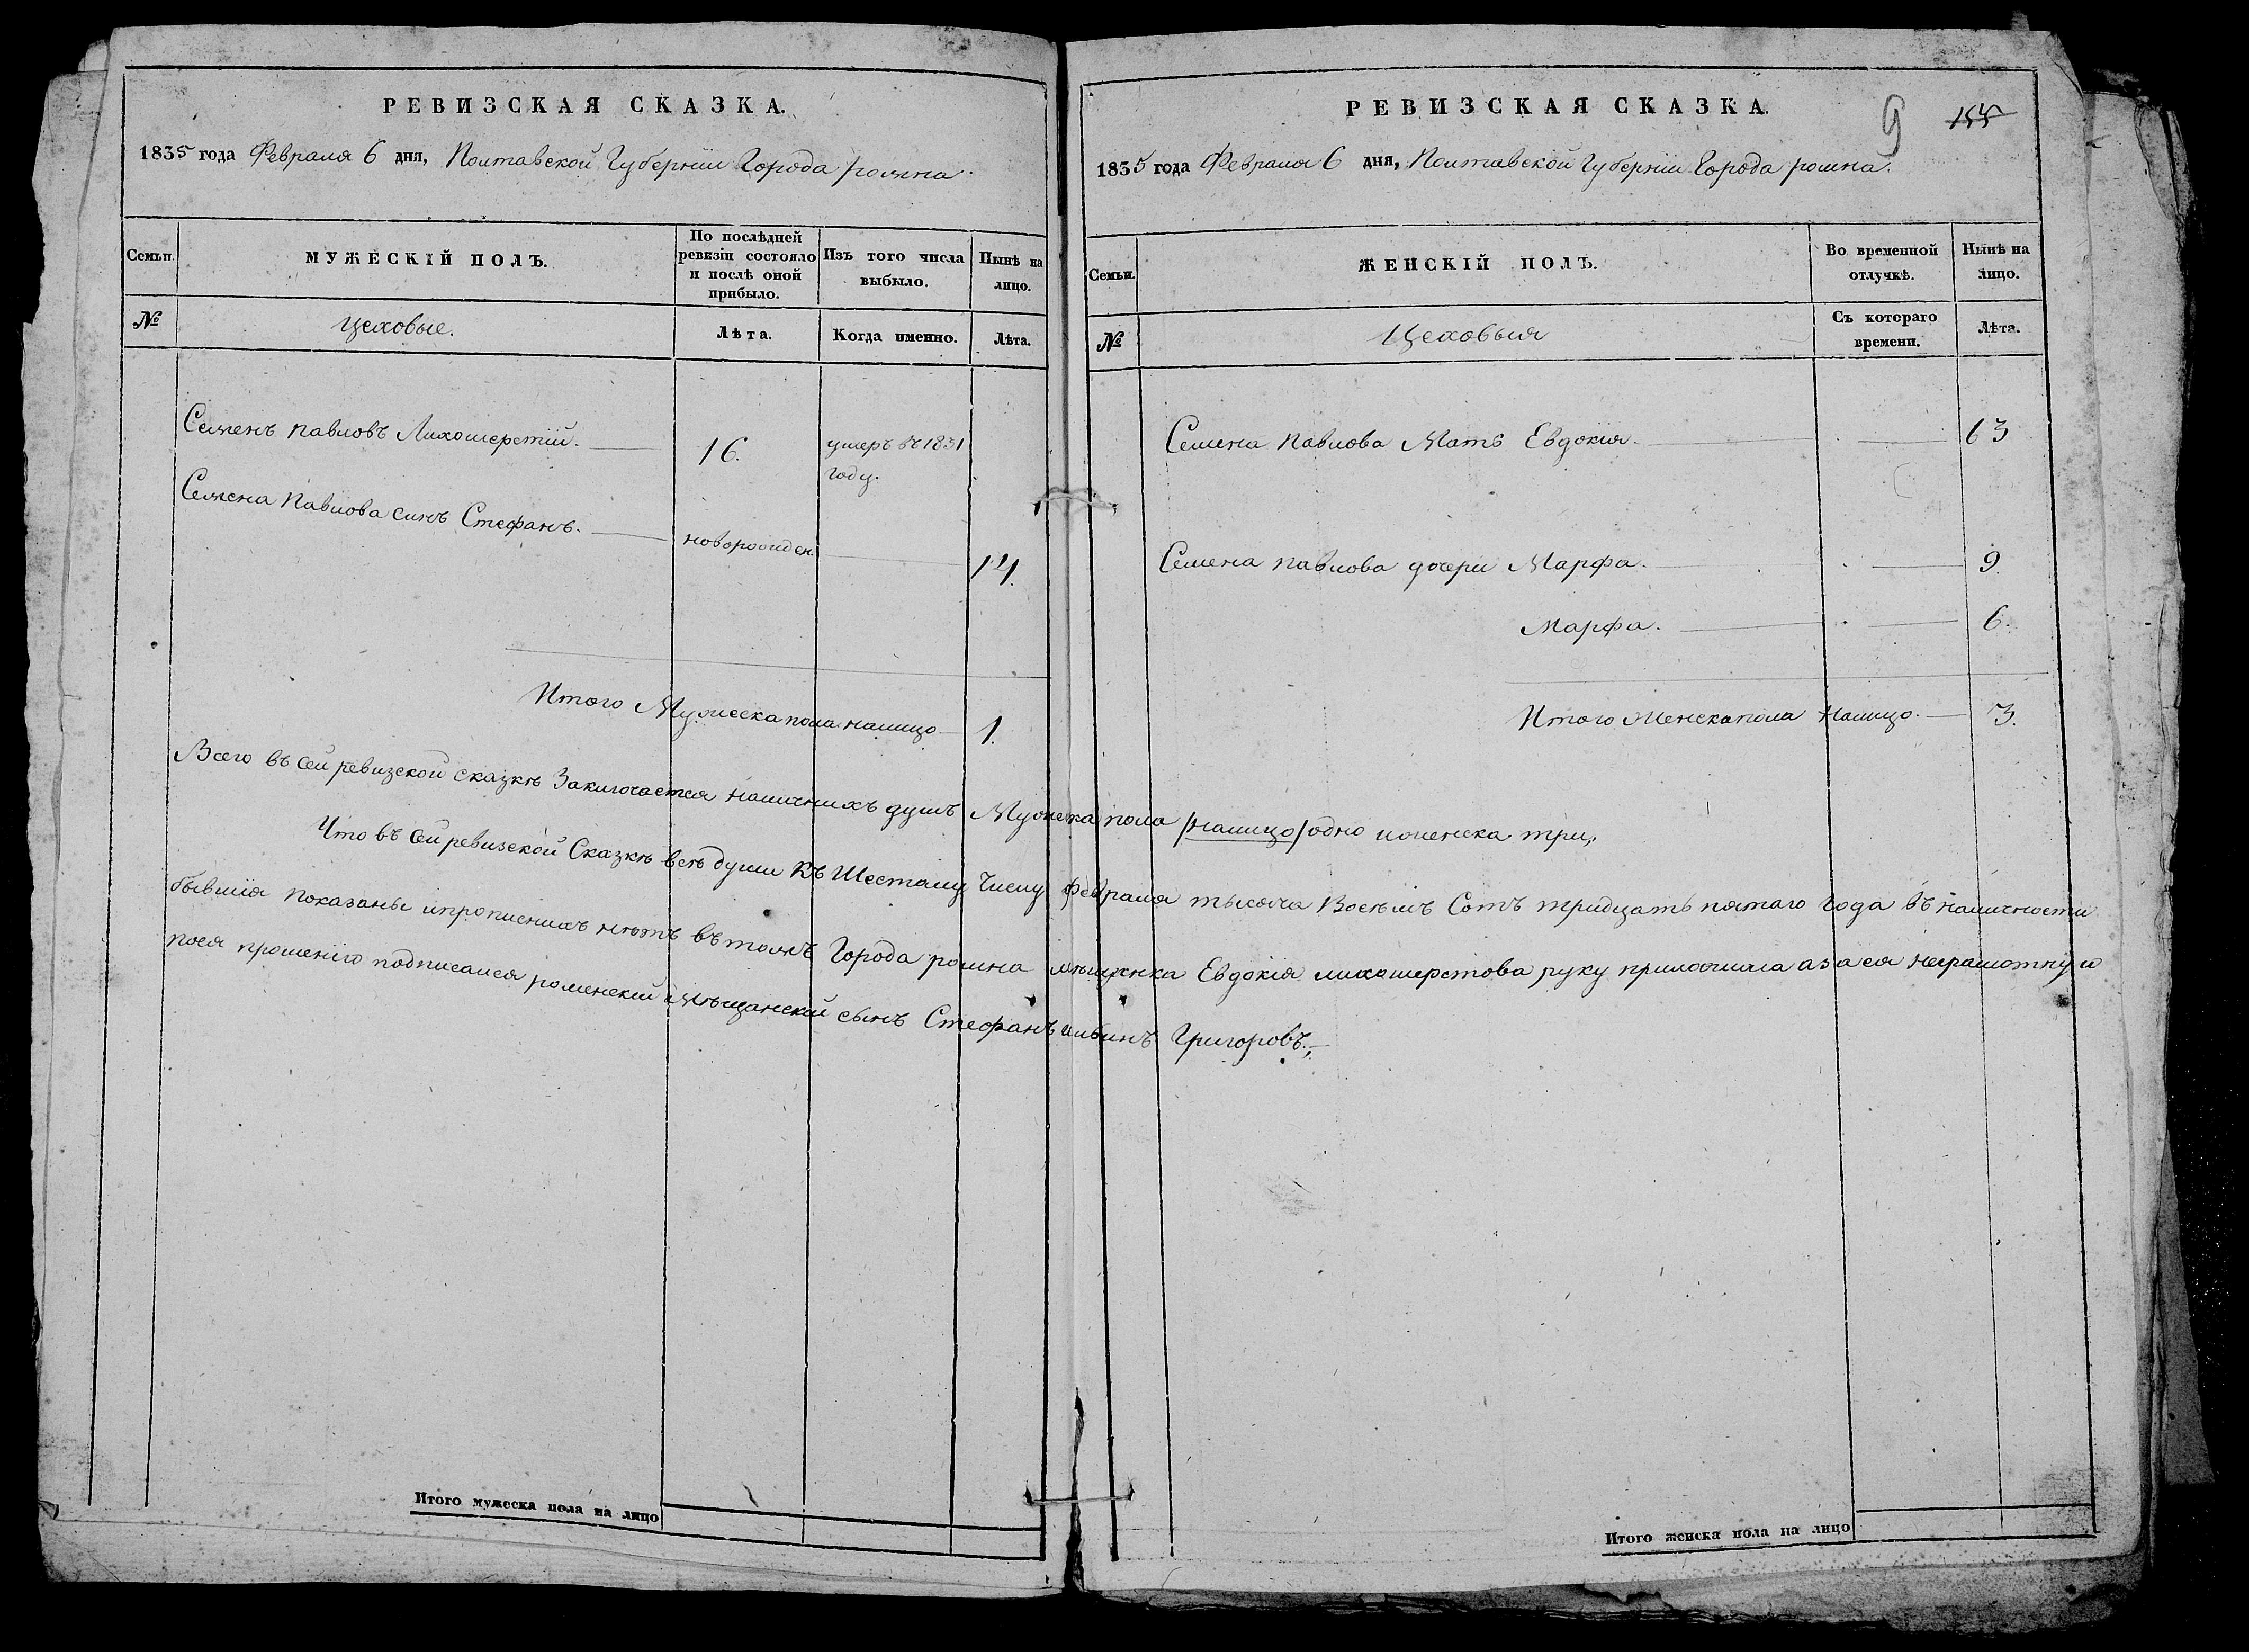 РЕВИЗСКАЯ СКАЗКА.
1835 года Февраля 6 дня, Полтавской Губерніи Города ромна.
Семьи.
МУЖЕСКІЙ ПОЛЪ.
По послѣдней ревизіи состояло и послѣ оной прибыло.
Изъ того числа выбыло.
Нынѣ на лицо.
№
Цеховые.
Лѣта.
Когда именно.
Лѣта.
Семенъ павловъ Лихошерстій. 16. умеръ въ 1831
году.
Семена Павлова синъ Стефанъ. новорожден. 14.
Итого Мужеска пола налицо 1.
РЕВИЗСКАЯ СКАЗКА.
9 155
1835 года Февраля 6 дня, Полтавской Губерніи Города ромна.
Семьи.
ЖЕНСКІЙ ПОЛЪ.
Во временной отлучкѣ.
Нынѣ на лицо.
№
Цеховыя
Съ котораго времени.
Лѣта.
Семена Павлова Мать Евдокія. 63
Семена павлова дочери Марфа. 9.
Марфа. 6.
Итого Женска пола Налицо. 3.
Всего въ сей ревизской сказкѣ Заключается наличнихъ душъ Мужека пола /налицо/ одно иженска три,
Что въ сей ревизской Сказкѣ всѣ души Къ Шестому Числу февраля тысяча Восѣмъ Сотъ тридцать пятаго Года въ наличности
бывшія показаны ипрописнихъ нѣтъ втомъ Города ромна мѣщанка Евдокія лихошерстова руку приложила азася неграмотную
поея прошенію подписался роменскій мѣщанскій сынъ Стефанъ ильинъ Григоровъ.
Итого мужеска пола на лицо
Итого женска пола на лицо